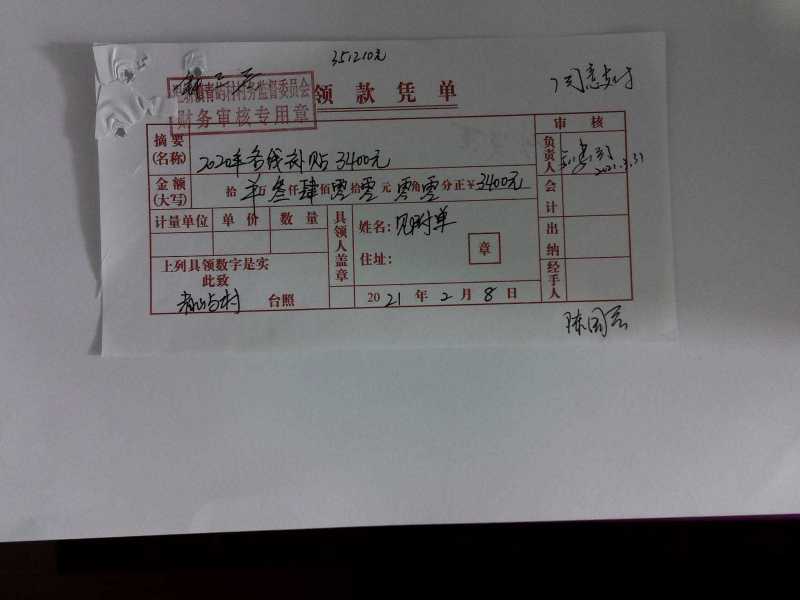 351210元
同意支付
村务监督委员会
财务审核专用章
领款凭单
审核
摘要
(名称)
2020年务线补贴3400元
负责人
2021.3.31
金额
(大写)
拾 万叁仟肆佰零拾零元零角零分正¥3400元
会计
计量单位 单价 数量
具领人盖章
姓名:见附单
住址:
章
出纳
上列具领数字是实
此致
村 台照
2021年2月8日
经手人